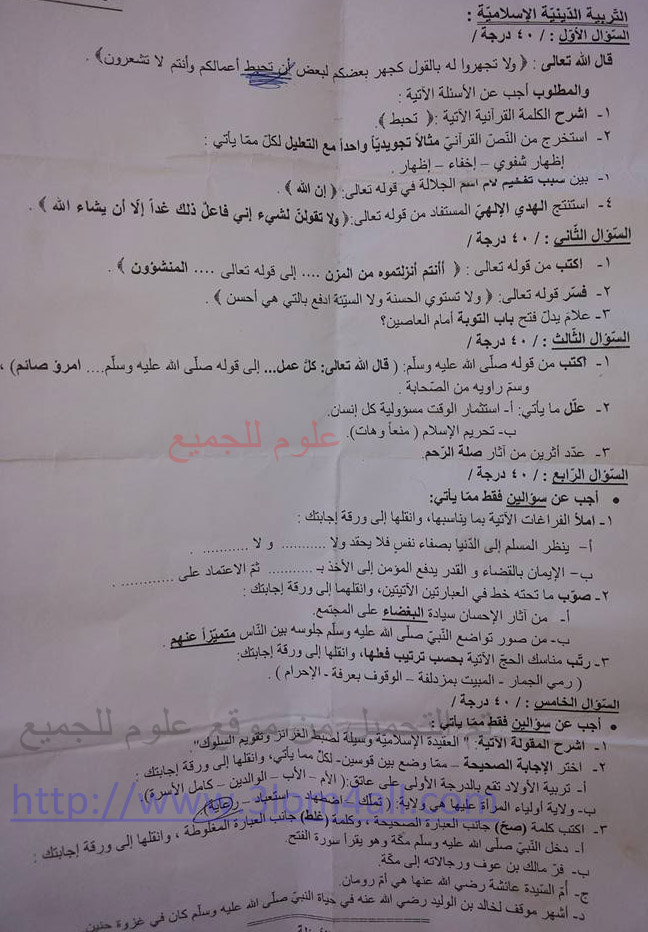 التربية الدّينيّة الإسلاميّة :
السّؤال الأوّل : / ٤٠ درجة /
قال الله تعالى : ﴿ ولا تجهروا له بالقول كجهر بعضكم لبعض أن تحبط أعمالكم وأنتم لا تشعرون﴾ .
والمطلوب أجب عن الأسئلة الآتية :
١- اشرح الكلمة القرآنية الآتية :﴿ تحبط ﴾.
٢- استخرج من النّصّ القرآنيّ مثالاً تجويديّاً واحداً مع التعليل لكلّ ممّا يأتي :
إظهار شفوي – إخفاء – إظهار .
١- بين سبب تفخيم لام اسم الجلالة في قوله تعالى: ﴿ إن الله ﴾ .
٤- استنتج الهدي الإلهيّ المستفاد من قوله تعالى:﴿ ولا تقولنّ لشيء إني فاعلٌ ذلك غداً إلّا أن يشاء الله ﴾ .
السّؤال الثّاني : / ٤٠ درجة /
١- اكتب من قوله تعالى : ﴿ أأنتم أنزلتموه من المزن .... إلى قوله تعالى .... المنشؤون ﴾ .
٢- فسّر قوله تعالى: ﴿ ولا تستوي الحسنة ولا السيّئة ادفع بالتي هي أحسن ﴾ .
٣- علامَ يدلّ فتح باب التوبة أمام العاصين؟
السّؤال الثّالث : / ٤٠ درجة /
١- اكتب من قوله صلّى الله عليه وسلّم: ( قال الله تعالى: كلّ عمل... إلى قوله صلّى الله عليه وسلّم.... امرؤ صائم) ،
وسمّ راويه من الصّحابة .
٢- علّل ما يأتي: أ- استثمار الوقت مسؤولية كل إنسان.
ب- تحريم الإسلام ( منعاً وهات).
علوم للجميع
٣- عدّد أثرين من آثار صلة الرّحم.
السّؤال الرّابع : / ٤٠ درجة /
• أجب عن سؤالين فقط ممّا يأتي:
١- املأ الفراغات الآتية بما يناسبها، وانقلها إلى ورقة إجابتك :
أ- ينظر المسلم إلى الدّنيا بصفاء نفس فلا يحقد ولا .......... و لا .......... .
ب- الإيمان بالقضاء و القدر يدفع المؤمن إلى الأخذ بـ .......... ثمّ الاعتماد على .......... .
٢- صوّب ما تحته خط في العبارتين الآتيتين، وانقلهما إلى ورقة إجابتك :
أ- من آثار الإحسان سيادة البغضاء على المجتمع.
ب- من صور تواضع النّبيّ صلّى الله عليه وسلّم جلوسه بين النّاس متميّزاً عنهم .
٣- رتّب مناسك الحجّ الآتية بحسب ترتيب فعلها، وانقلها إلى ورقة إجابتك:
( رمي الجمار - المبيت بمزدلفة - الوقوف بعرفة - الإحرام ) .
السّؤال الخامس : / ٤٠ درجة /
من موقع علوم للجميع
• أجب عن سؤالين فقط ممّا يأتي :
١- اشرح المقولة الآتية: " العقيدة الإسلاميّة وسيلة لضبط الغرائز وتقويم السلوك"
٢- اختر الإجابة الصحيحة – ممّا وضع بين قوسين- لكلّ مما يأتي، وانقلها إلى ورقة إجابتك :
أ- تربية الأولاد تقع بالدرجة الأولى على عاتق:( الأم – الأب – الوالدين – كامل الأسرة).
ب- ولاية أولياء المرأة عليها هي ولاية: ( تملك – استعباد – رعاية).
٣- اكتب كلمة (صحّ) جانب العبارة الصحيحة ، وكلمة (غلط) جانب العبارة المغلوطة ، وانقلها إلى ورقة إجابتك :
أ- دخل النّبيّ صلّى الله عليه وسلّم مكّة وهو يقرأ سورة الفتح.
ب- فرّ مالك بن عوف ورجالاته إلى مكّة.
ج- أمّ السّيدة عائشة رضي الله عنها هي أمّ رومان.
د- أشهر موقف لخالد بن الوليد رضي الله عنه في حياة النبيّ صلّى الله عليه وسلّم كان في غزوة حنين